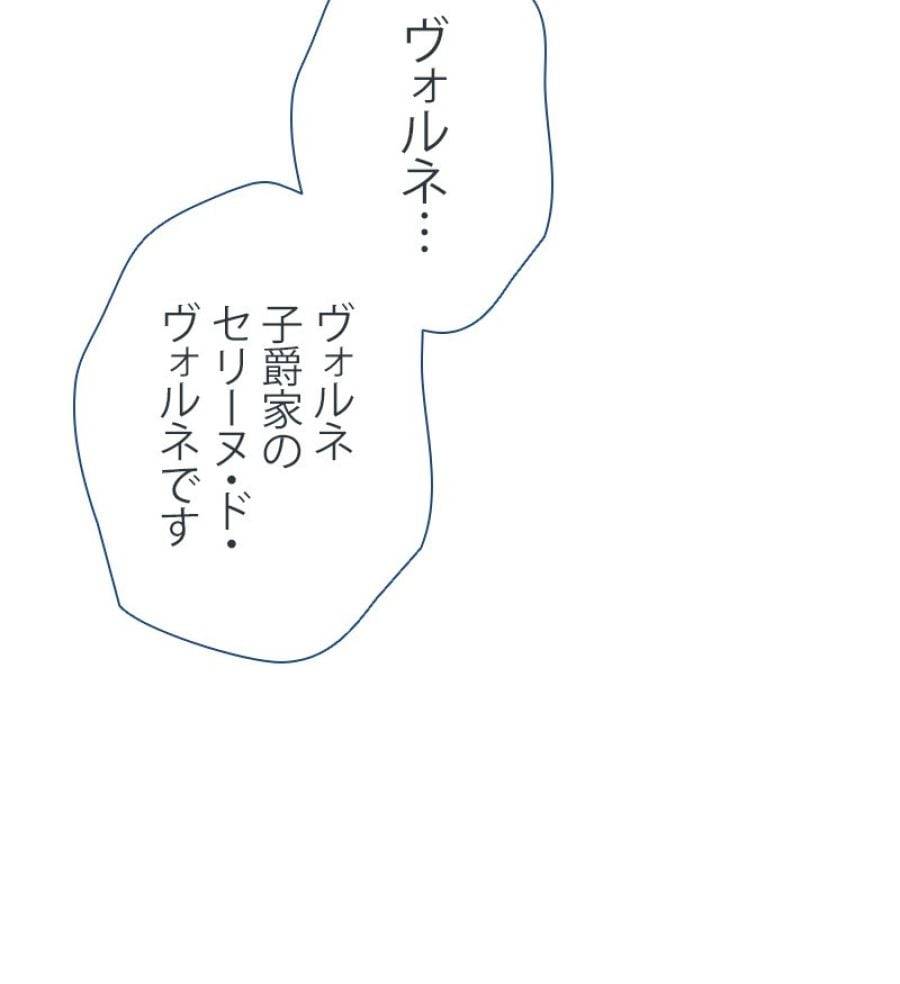 ヴォルネ…
ヴォルネ
子爵家の
セリーヌ・ド・
ヴォルネです